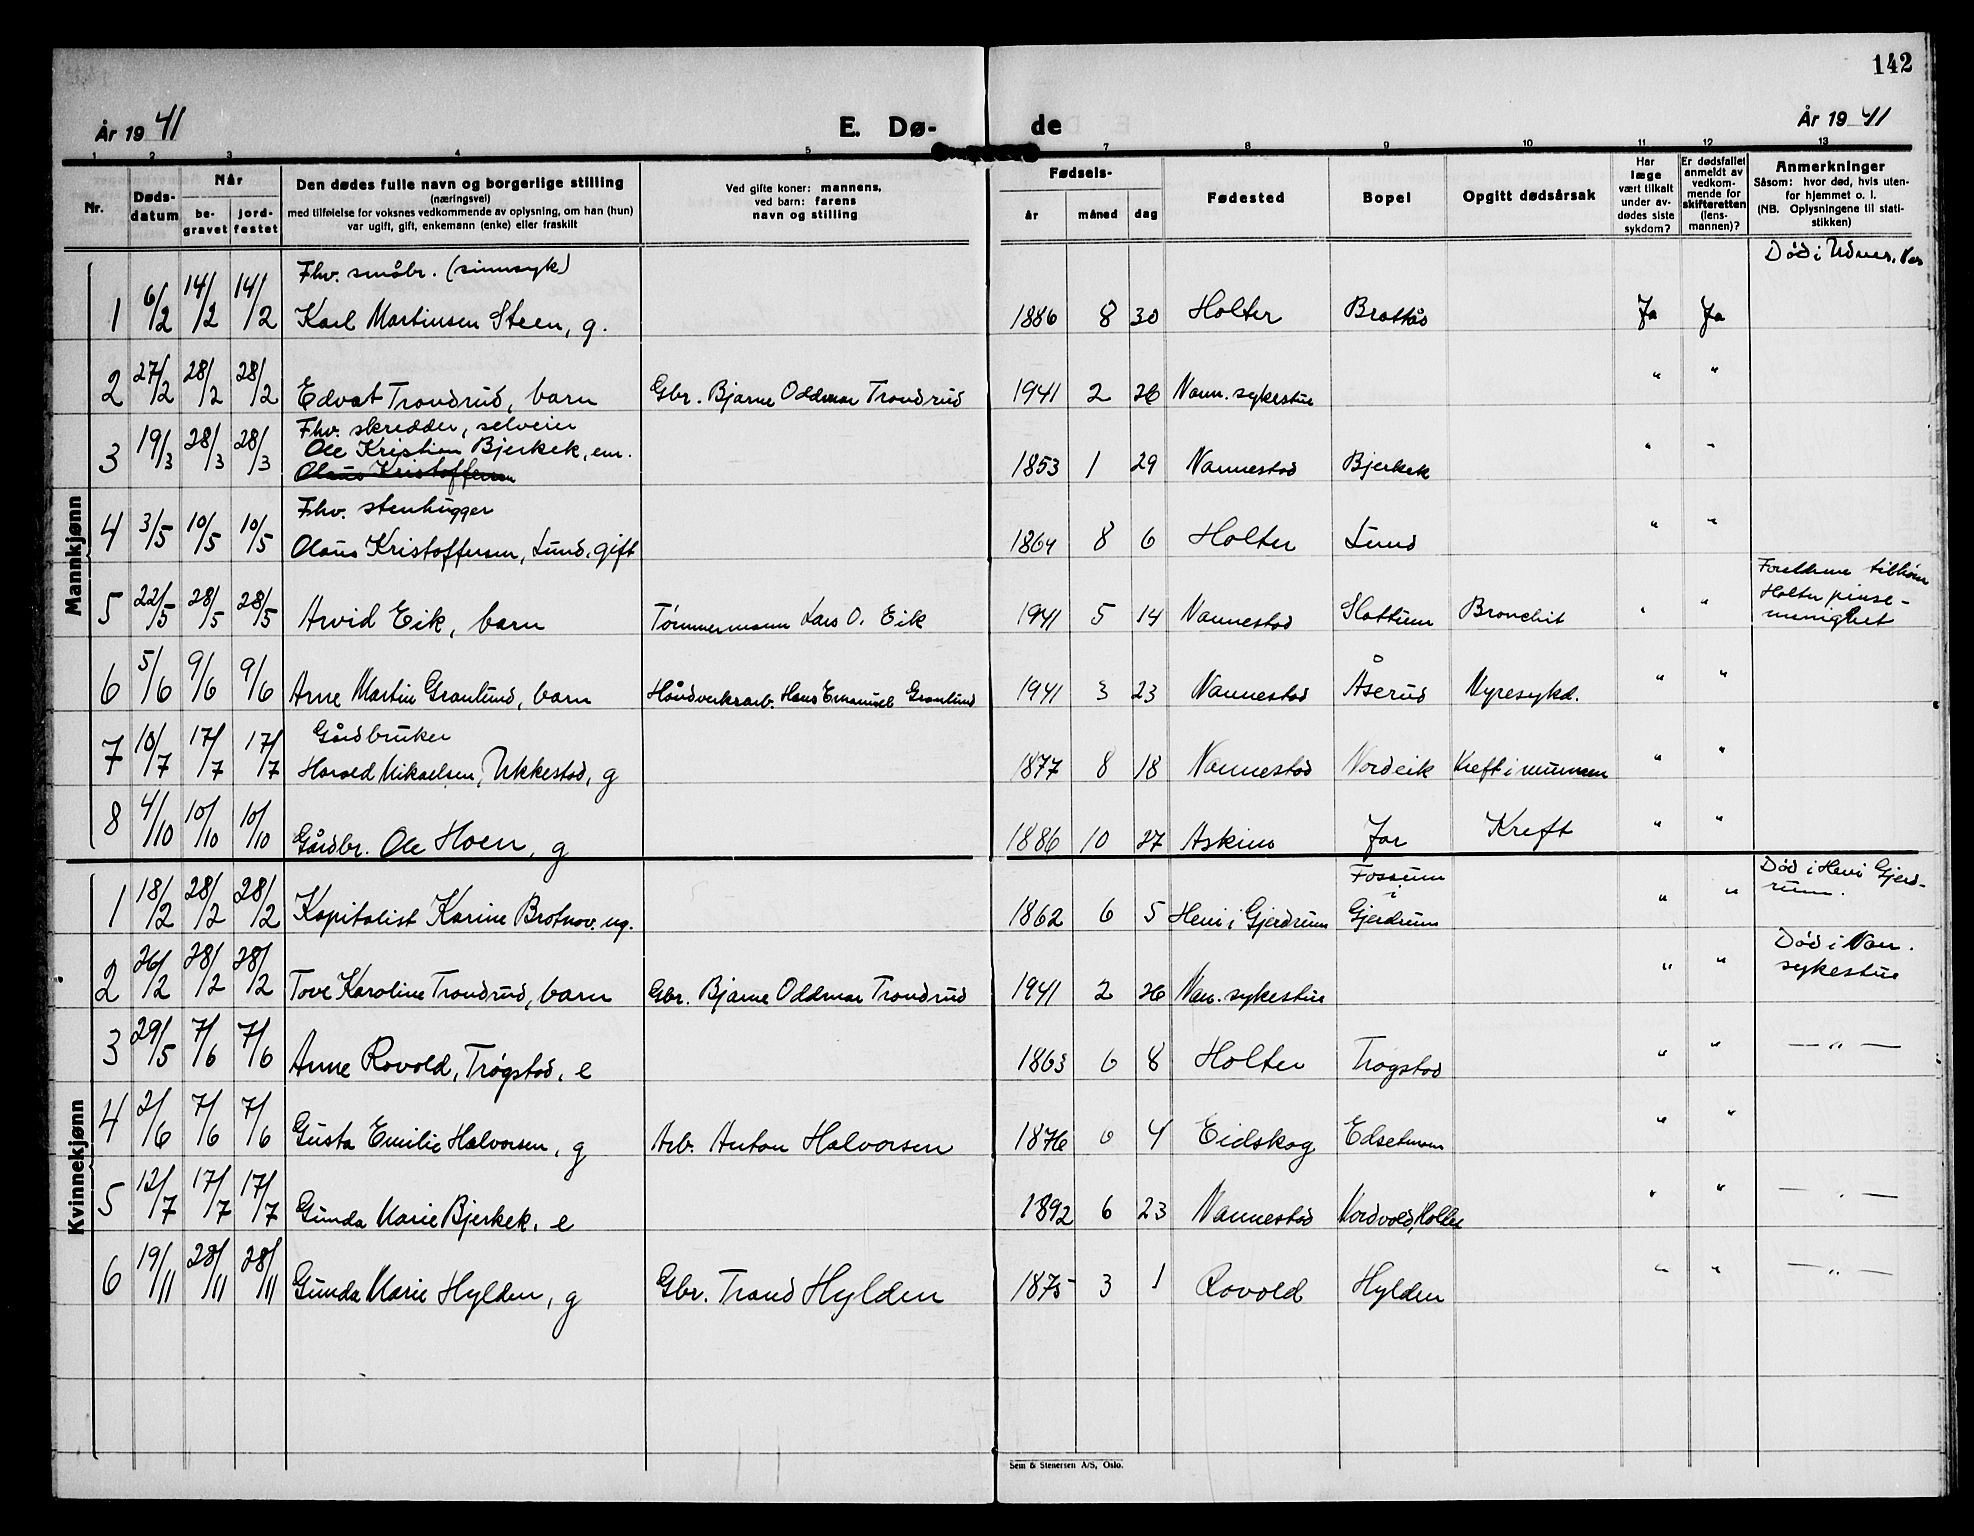 142
År 19 41
E. Dø-
de
År 19 41
1 2 3 4 5 7 8 9 10 11 12 13
Nr.
Døds-
datum
Når
be-
gravet
jord-
festet
Den dødes fulle navn og borgerlige stilling
(næringsvei)
med tilføielse for voksnes vedkommende av oplysning, om han (hun)
var ugift, gift, enkemann (enke) eller fraskilt
Ved gifte koner: mannens,
ved barn: farens
navn og stilling
Fødsels-
år måned dag
Fødested
Bopel
Opgitt dødsårsak
Har
læge
vært tilkalt
under av-
dødes siste
sykdom?
Er dødsfallet
anmeldt av
vedkom-
mende for
skifteretten
(lens-
mannen)?
Anmerkninger
Såsom: hvor død, hvis uten-
for hjemmet o. l.
(NB. Oplysningene til stati-
stikken)
Mannkjønn
Fhv. småbr. (sinnsyk) Død i
1 6/2 14/2 14/2 Karl Martinsen Steen, g. 1886 8 30 Holter Brattås Ja Ja
2 27/2 28/2 28/2 Edvat Trondrud, barn Gbr. Bjarne Oddmar Trondrud 1941 2 26 Nann. sykestue " "
Fhv. skredder, selveier
3 19/3 28/3 28/3 Ole Kristian Bjerkek, em. 1853 1 29 Nannestad Bjerkek " "
Olaus Kristoffersen
Fhv. stenhugger
4 3/5 10/5 10/5 Olaus Kristoffersen, Lund, gift 1864 8 6 Holter Lund " "
Foreldrene tilhører
Holter pinse-
5 22/5 28/5 28/5 Arvid Eik, barn Tømmermann Lars O. Eik 1941 5 14 Nannestad Slattum Bronchit " " menighet
6 5/6 9/6 9/6 Arne Martin Granlund, barn Håndverksarb. Hans Emanuel Granlund 1941 3 23 Nannestad Åserud Nyresykd. " "
Gårdbruker
7 10/7 17/7 17/7 Harald Mikaelsen, Ukkestad, g 1877 8 18 Nannestad Nordeik Kreft i munnen " "
8 4/10 10/10 10/10 Gårdbr. Ole Hoen, g 1886 10 27 Askim Jar Kreft " "
Kvinnekjønn
Fossum Død i Heni Gjerd-
i rum.
1 18/2 28/2 28/2 Kapitalist Karine Brotnov. ug. 1862 6 5 Heni i Gjerdrum Gjerdrum " "
Død i Nan.
sykestue
2 26/2 28/2 28/2 Tove Karoline Trondrud, barn Gbr. Bjarne Oddmar Trondrud 1941 2 26 Nan. sykestue " "
3 29/5 7/6 7/6 Anne Rovold, Trøgstad, e 1863 6 8 Holter Trøgstad " " — " —
4 2/6 7/6 7/6 Gusta Emilie Halvorsen, g Arb. Anton Halvorsen 1876 4 Eidskog " "
5 12/7 17/7 17/7 Gunda Marie Bjerkek, e 1892 6 23 Nannestad Nordvold, Holter " " — " —
6 19/11 28/11 28/11 Gunda Marie Hylden, g Gbr. Trond Hylden 1875 3 1 Rovold Hylden " " — " —
Sem & Stenersen A/S, Oslo.